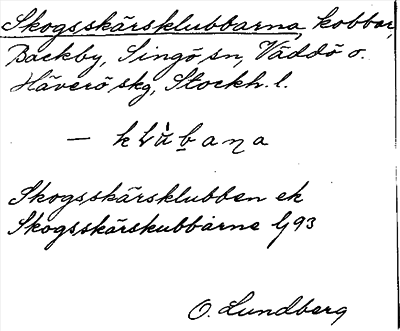 Skogsskärsklubbarna, kobbar,
Backby, Singö sn, Väddö o.
Häverö skg, Stockh. l.
— klùbaṇa
Skogsskärsklubben ek
Skogsskärskubbarne Lj 93
O. Lundberg